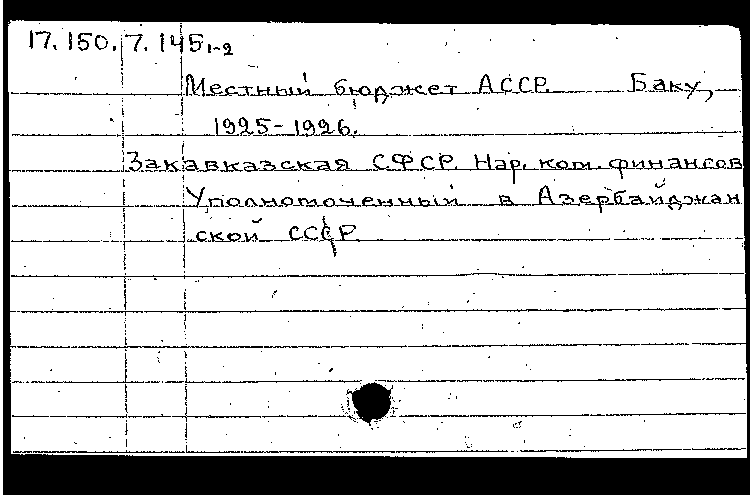 17.150.7.145₁₋₂
Местный бюджет АССР. Баку,
1925-1926.
Закавказская СФСР. Нар. ком. финансов
Уполномоченный в Азербайджан
ской СССР.